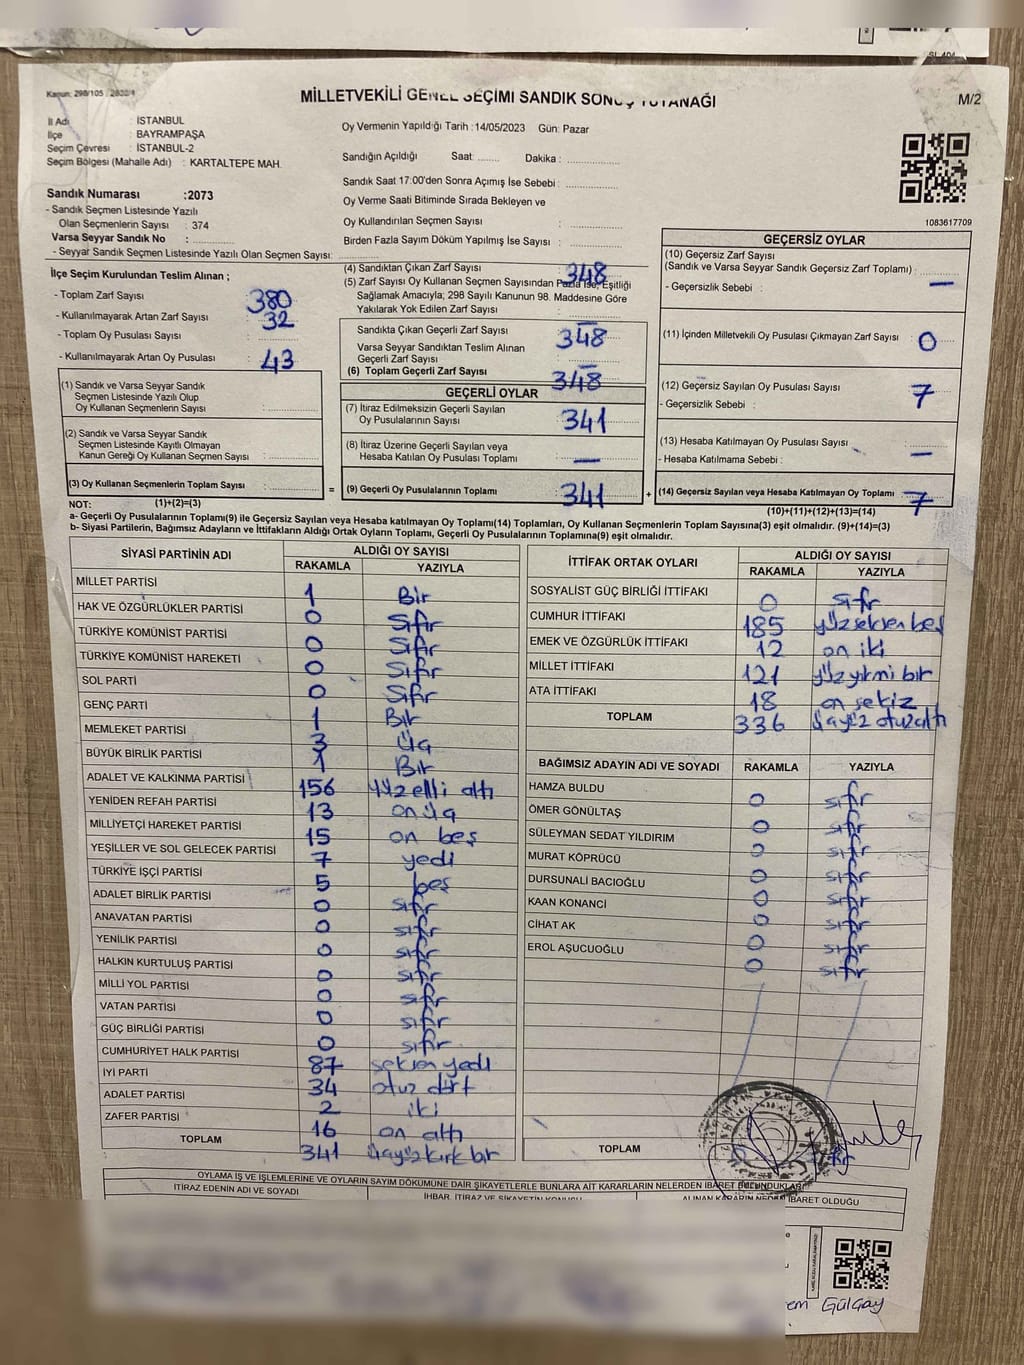 SI 404
Kanun: 298/105
MİLLETVEKİLİ GENEL SEÇİMİ SANDIK SONUÇ TUTANAĞI
M/2
İl Adı : İSTANBUL
İlçe : BAYRAMPAŞA
Seçim Çevresi : İSTANBUL-2
Seçim Bölgesi (Mahalle Adı) : KARTALTEPE MAH.
Oy Vermenin Yapıldığı Tarih :14/05/2023 Gün: Pazar
Sandığın Açıldığı Saat: ........ Dakika: ..............
Sandık Saat 17:00'den Sonra Açımış İse Sebebi: ..............
Oy Verme Saati Bitiminde Sırada Bekleyen ve
Oy Kullandırılan Seçmen Sayısı : ..............
Birden Fazla Sayım Döküm Yapılmış İse Sayısı : ..............
Sandık Numarası :2073
- Sandık Seçmen Listesinde Yazılı
Olan Seçmenlerin Sayısı : 374
Varsa Seyyar Sandık No : ..............
- Seyyar Sandık Seçmen Listesinde Yazılı Olan Seçmen Sayısı: ..............
1083617709
İlçe Seçim Kurulundan Teslim Alınan ;
- Toplam Zarf Sayısı : 380
- Kullanılmayarak Artan Zarf Sayısı : 32
- Toplam Oy Pusulası Sayısı :
- Kullanılmayarak Artan Oy Pusulası : 43
(1) Sandık ve Varsa Seyyar Sandık
Seçmen Listesinde Yazılı Olup
Oy Kullanan Seçmenlerin Sayısı : ..............
(2) Sandık ve Varsa Seyyar Sandık
Seçmen Listesinde Kayıtlı Olmayan
Kanun Gereği Oy Kullanan Seçmen Sayısı : ..............
(3) Oy Kullanan Seçmenlerin Toplam Sayısı : ..............
(1)+(2)=(3)
(4) Sandıktan Çıkan Zarf Sayısı : 348
(5) Zarf Sayısı Oy Kullanan Seçmen Sayısından Fazla İse, Eşitliği
Sağlamak Amacıyla; 298 Sayılı Kanunun 98. Maddesine Göre
Yakılarak Yok Edilen Zarf Sayısı : —
Sandıkta Çıkan Geçerli Zarf Sayısı : 348
Varsa Seyyar Sandıktan Teslim Alınan
Geçerli Zarf Sayısı : —
(6) Toplam Geçerli Zarf Sayısı : 348
GEÇERLİ OYLAR
(7) İtiraz Edilmeksizin Geçerli Sayılan
Oy Pusulalarının Sayısı : 341
(8) İtiraz Üzerine Geçerli Sayılan veya
Hesaba Katılan Oy Pusulası Toplamı : —
= (9) Geçerli Oy Pusulalarının Toplamı : 341 +
GEÇERSİZ OYLAR
(10) Geçersiz Zarf Sayısı
(Sandık ve Varsa Seyyar Sandık Geçersiz Zarf Toplamı) :
- Geçersizlik Sebebi : —
(11) İçinden Milletvekili Oy Pusulası Çıkmayan Zarf Sayısı : 0
(12) Geçersiz Sayılan Oy Pusulası Sayısı : 7
- Geçersizlik Sebebi :
(13) Hesaba Katılmayan Oy Pusulası Sayısı : —
- Hesaba Katılmama Sebebi :
(14) Geçersiz Sayılan veya Hesaba Katılmayan Oy Toplamı : 7
(10)+(11)+(12)+(13)=(14)
NOT:
a- Geçerli Oy Pusulalarının Toplamı(9) ile Geçersiz Sayılan veya Hesaba katılmayan Oy Toplamı(14) Toplamları, Oy Kullanan Seçmenlerin Toplam Sayısına(3) eşit olmalıdır. (9)+(14)=(3)
b- Siyasi Partilerin, Bağımsız Adayların ve İttifakların Aldığı Ortak Oyların Toplamı, Geçerli Oy Pusulalarının Toplamına(9) eşit olmalıdır.
SİYASİ PARTİNİN ADI ALDIĞI OY SAYISI
RAKAMLA YAZIYLA
MİLLET PARTİSİ 1 Bir
HAK VE ÖZGÜRLÜKLER PARTİSİ 0 Sıfır
TÜRKİYE KOMÜNİST PARTİSİ 0 Sıfır
TÜRKİYE KOMÜNİST HAREKETİ 0 Sıfır
SOL PARTİ 0 Sıfır
GENÇ PARTİ 1 Bir
MEMLEKET PARTİSİ 3 Üç
BÜYÜK BİRLİK PARTİSİ 1 Bir
ADALET VE KALKINMA PARTİSİ 156 yüz elli altı
YENİDEN REFAH PARTİSİ 13 on üç
MİLLİYETÇİ HAREKET PARTİSİ 15 on beş
YEŞİLLER VE SOL GELECEK PARTİSİ 7 yedi
TÜRKİYE İŞÇİ PARTİSİ 5 beş
ADALET BİRLİK PARTİSİ 0 sıfır
ANAVATAN PARTİSİ 0 sıfır
YENİLİK PARTİSİ 0 sıfır
HALKIN KURTULUŞ PARTİSİ 0 sıfır
MİLLİ YOL PARTİSİ 0 sıfır
VATAN PARTİSİ 0 sıfır
GÜÇ BİRLİĞİ PARTİSİ 0 sıfır
CUMHURİYET HALK PARTİSİ 87 seksen yedi
İYİ PARTİ 34 otuz dört
ADALET PARTİSİ 2 iki
ZAFER PARTİSİ 16 on altı
TOPLAM 341 üçyüz kırk bir
İTTİFAK ORTAK OYLARI ALDIĞI OY SAYISI
RAKAMLA YAZIYLA
SOSYALİST GÜÇ BİRLİĞİ İTTİFAKI 0 sıfır
CUMHUR İTTİFAKI 185 yüzseksen beş
EMEK VE ÖZGÜRLÜK İTTİFAKI 12 on iki
MİLLET İTTİFAKI 121 yüz yirmi bir
ATA İTTİFAKI 18 on sekiz
TOPLAM 336 üçyüz otuzaltı
BAĞIMSIZ ADAYIN ADI VE SOYADI RAKAMLA YAZIYLA
HAMZA BULDU 0 sıfır
ÖMER GÖNÜLTAŞ 0 sıfır
SÜLEYMAN SEDAT YILDIRIM 0 sıfır
MURAT KÖPRÜCÜ 0 sıfır
DURSUNALİ BACIOĞLU 0 sıfır
KAAN KONANCİ 0 sıfır
CİHAT AK 0 sıfır
EROL AŞUCUOĞLU 0 sıfır
TOPLAM
OYLAMA İŞ VE İŞLEMLERİNE VE OYLARIN SAYIM DÖKÜMÜNE DAİR ŞİKAYETLERLE BUNLARA AİT KARARLARIN NELERDEN İBARET BULUNDUKLARI
İTİRAZ EDENİN ADI VE SOYADI İHBAR, İTİRAZ VE ŞİKAYETİN KONUSU ALINAN KARARIN NEDEN İBARET OLDUĞU
Gülgay